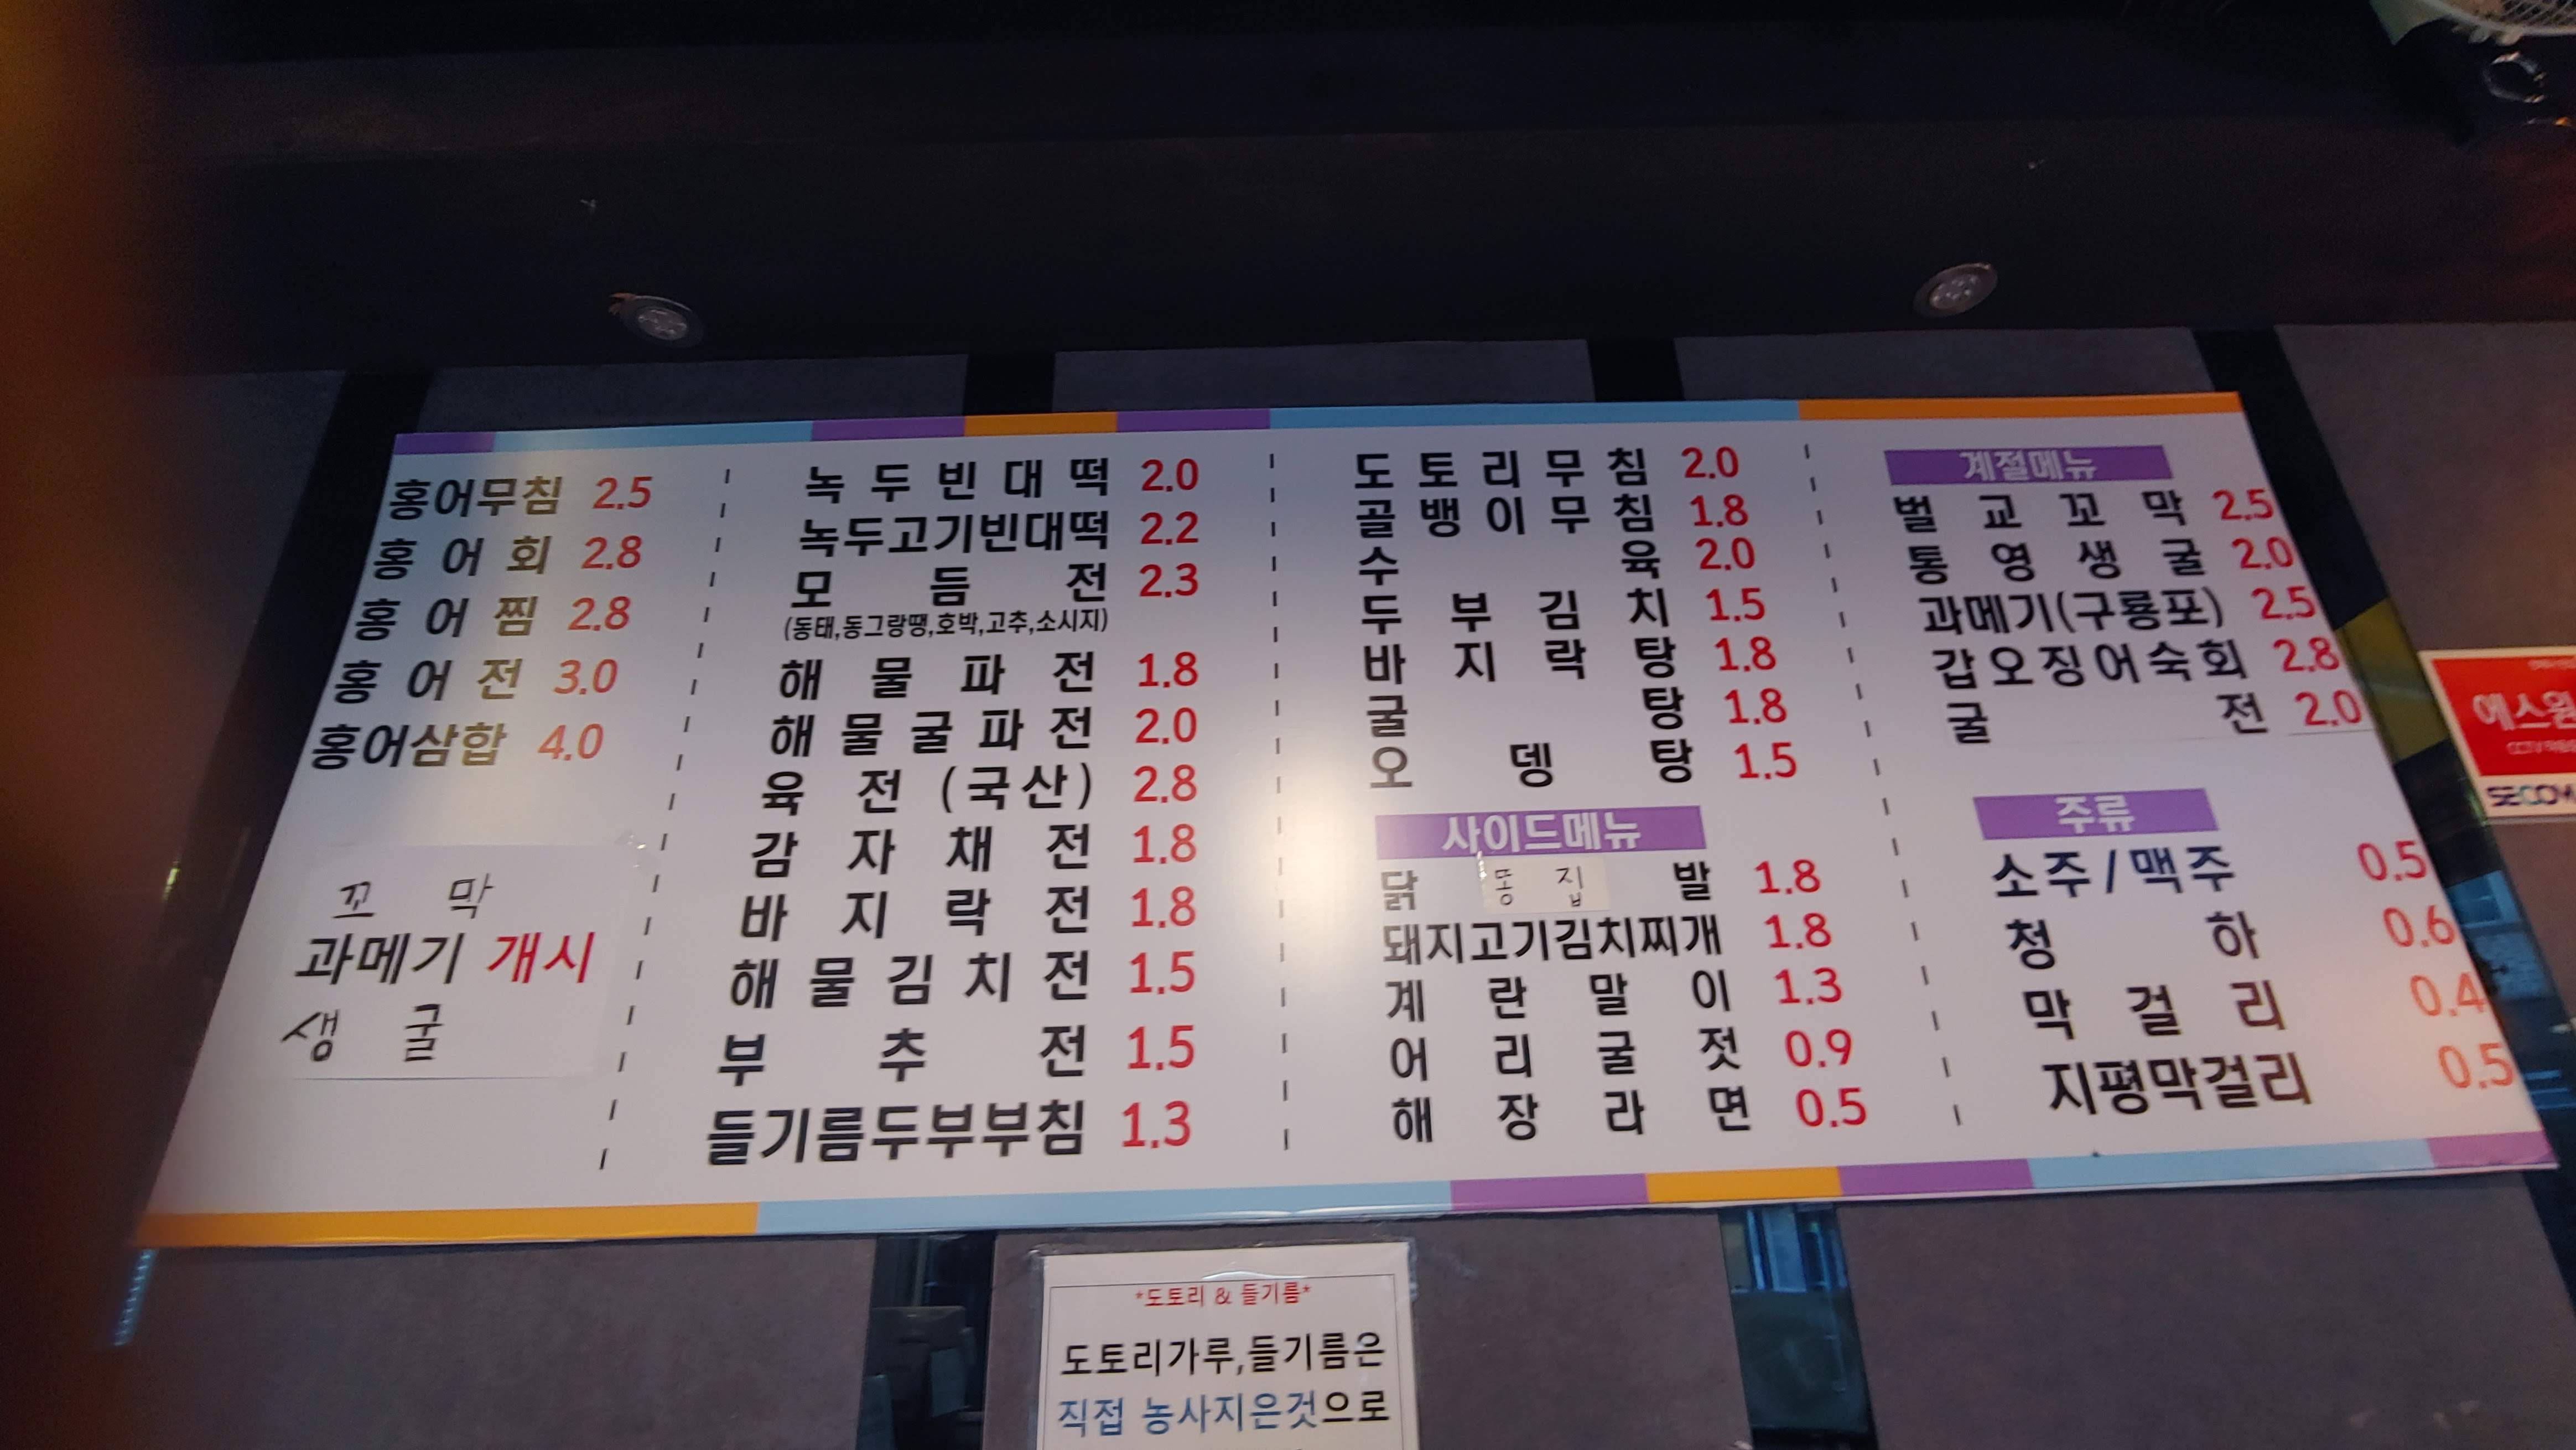 홍어무침 2.5
홍어회 2.8
홍어찜 2.8
홍어전 3.0
홍어삼합 4.0
꼬막
과메기 개시
생굴
녹두빈대떡 2.0
녹두고기빈대떡 2.2
모듬전 2.3
(동태,동그랑땡,호박,고추,소시지)
해물파전 1.8
해물굴파전 2.0
육전(국산) 2.8
감자채전 1.8
바지락전 1.8
해물김치전 1.5
부추전 1.5
들기름두부부침 1.3
도토리무침 2.0
골뱅이무침 1.8
수육 2.0
두부김치 1.5
바지락탕 1.8
굴탕 1.8
오뎅탕 1.5
사이드메뉴
닭똥집발 1.8
돼지고기김치찌개 1.8
계란말이 1.3
어리굴젓 0.9
해장라면 0.5
계절메뉴
벌교꼬막 2.5
통영생굴 2.0
과메기(구룡포) 2.5
갑오징어숙회 2.8
굴전 2.0
주류
소주/맥주 0.5
청하 0.6
막걸리 0.4
지평막걸리 0.5
*도토리 & 들기름*
도토리가루,들기름은
직접 농사지은것으로
에스원
SECOM